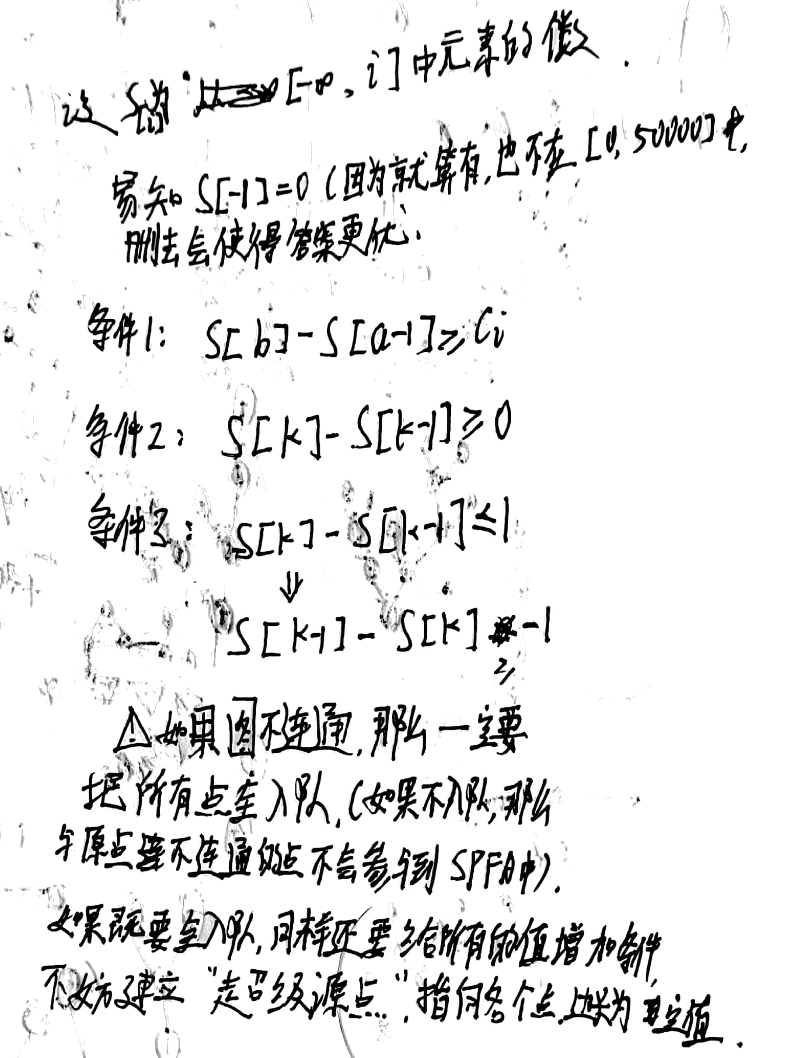 设 S[i]为 [-∞, i]中元素的个数.
易知 S[-1]=0 (因为就算有,也不在 [0, 50000]中,
删去会使得答案更优.
条件1: S[b]-S[a-1]≥Ci
条件2: S[k]-S[k-1]≥0
条件3: S[k]-S[k-1]≤1
⇓
S[k-1]-S[k] ≥ -1
⚠如果图不连通,那么一定要
把所有点全入队,(如果不入队,那么
与原点不连通的点不会参与到SPFA中).
如果既要全入队,同样还要给所有的值增加条件,
不妨建立“超级源点”,指向各个点,边长为 定值.